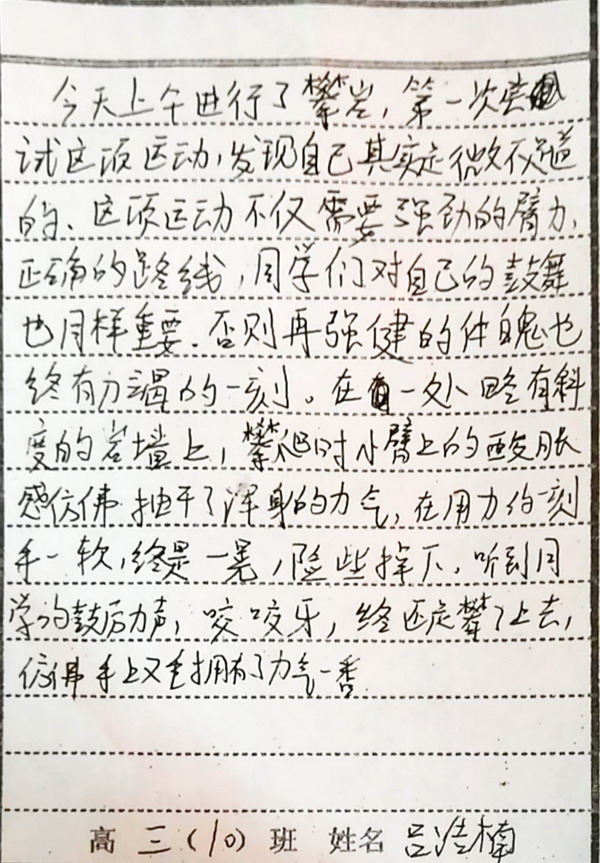 今天上午进行了攀岩，第一次尝
试这项运动，发现自己其实是微不足道
的、这项运动不仅需要强劲的臂力，
正确的路线，同学们对自己的鼓舞
也同样重要.否则再强健的体魄也
终有力竭的一刻。在一处略有斜
度的岩墙上，攀爬时小臂上的酸胀
感仿佛抽干了浑身的力气，在用力的一刻
手一软，终是一晃，险些掉下、听到同
学的鼓励声，咬咬牙，终还是攀了上去，
仿佛手上又重拥有了力气一番
高三(10)班 姓名 吕浩楠